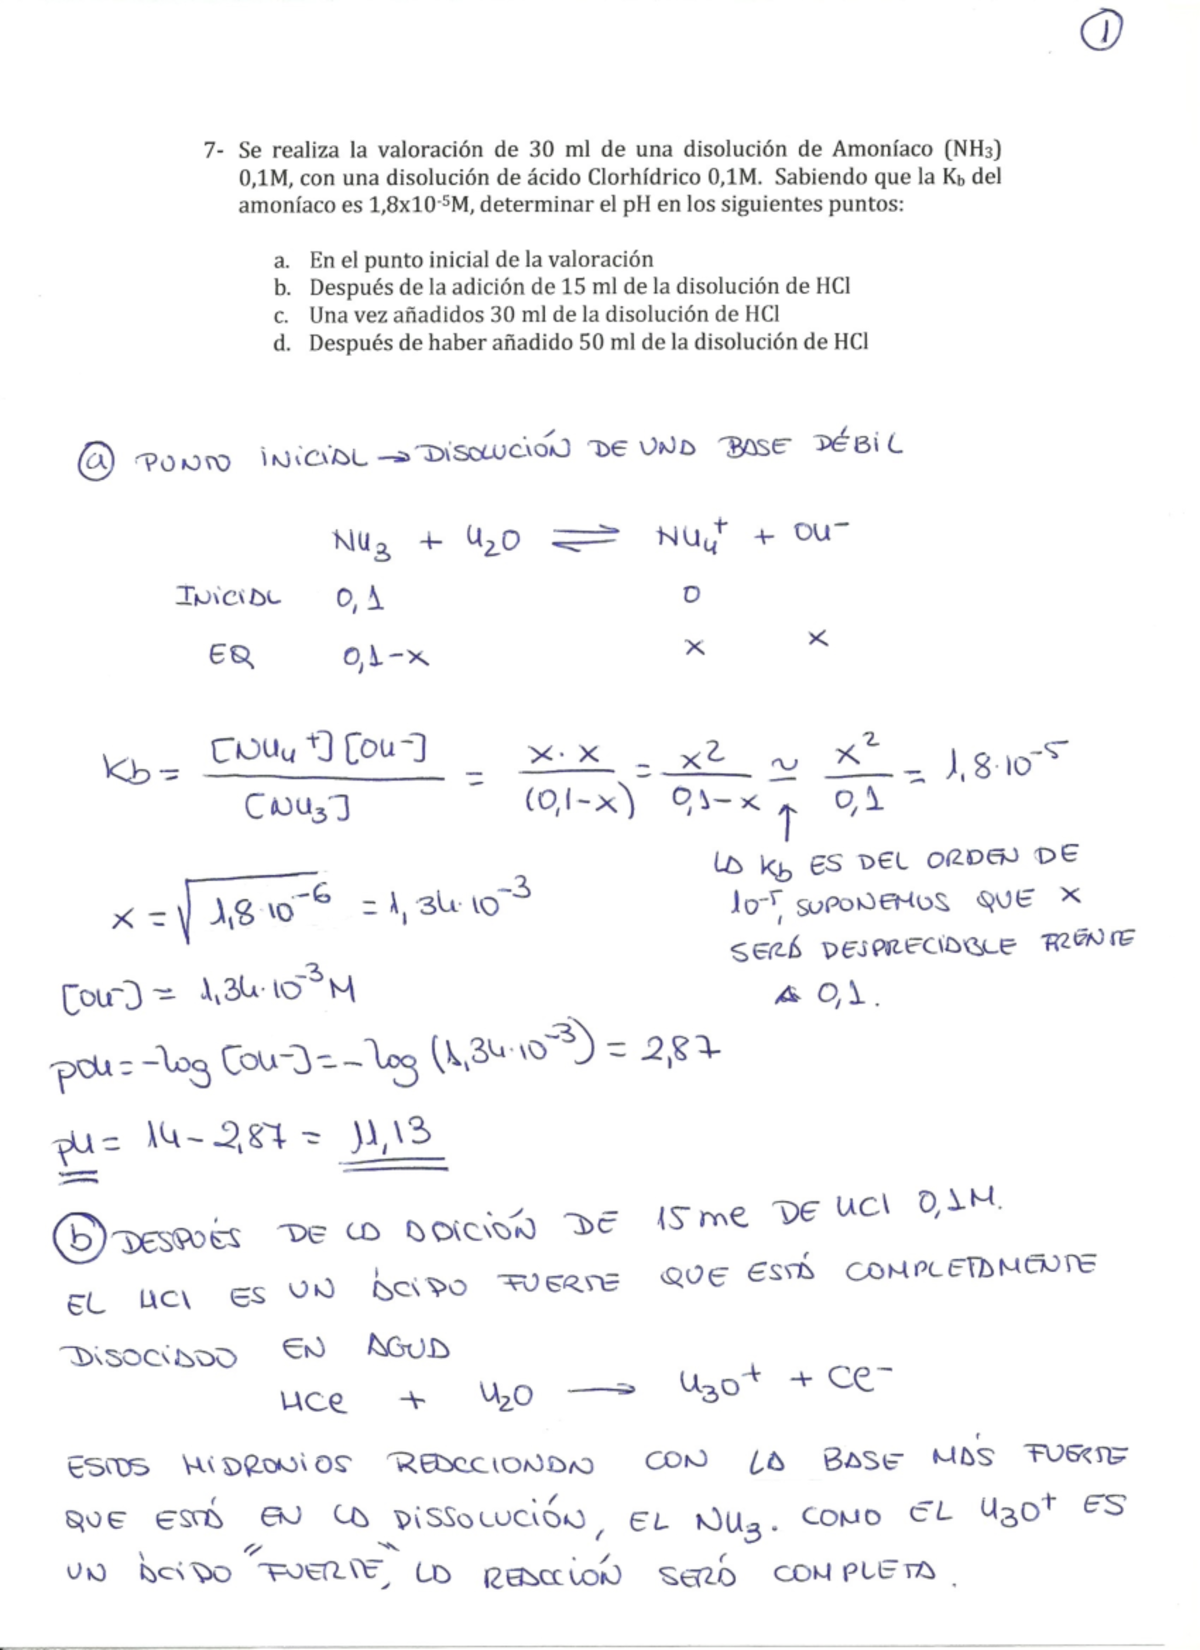 1
7- Se realiza la valoración de 30 ml de una disolución de Amoníaco (NH₃)
0,1M, con una disolución de ácido Clorhídrico 0,1M. Sabiendo que la Kb del
amoníaco es 1,8x10⁻⁵M, determinar el pH en los siguientes puntos:
a. En el punto inicial de la valoración
b. Después de la adición de 15 ml de la disolución de HCl
c. Una vez añadidos 30 ml de la disolución de HCl
d. Después de haber añadido 50 ml de la disolución de HCl
a) PUNTO INICIAL → DISOLUCIÓN DE UNA BASE DÉBIL
NH₃ + H₂O ⇌ NH₄⁺ + OH⁻
INICIAL 0,1 0
EQ 0,1-x x x
Kb = [NH₄⁺][OH⁻] / [NH₃] = x·x / (0,1-x) = x² / 0,1-x ≃ x² / 0,1 = 1,8·10⁻⁵
↑
LA Kb ES DEL ORDEN DE
10⁻⁵, SUPONEMOS QUE X
SERÁ DESPRECIABLE FRENTE
A 0,1.
x = √1,8·10⁻⁶ = 1,34·10⁻³
[OH⁻] = 1,34·10⁻³ M
pOH = -log [OH⁻] = -log (1,34·10⁻³) = 2,87
pH = 14 - 2,87 = 11,13
b) DESPUÉS DE LA ADICIÓN DE 15 ml DE HCl 0,1M.
EL HCl ES UN ÁCIDO FUERTE QUE ESTÁ COMPLETAMENTE
DISOCIADO EN AGUA
HCl + H₂O → H₃O⁺ + Cl⁻
ESTOS HIDRONIOS REACCIONAN CON LA BASE MÁS FUERTE
QUE ESTÁ EN LA DISSOLUCIÓN, EL NH₃. COMO EL H₃O⁺ ES
UN ÁCIDO "FUERTE", LA REACCIÓN SERÁ COMPLETA.